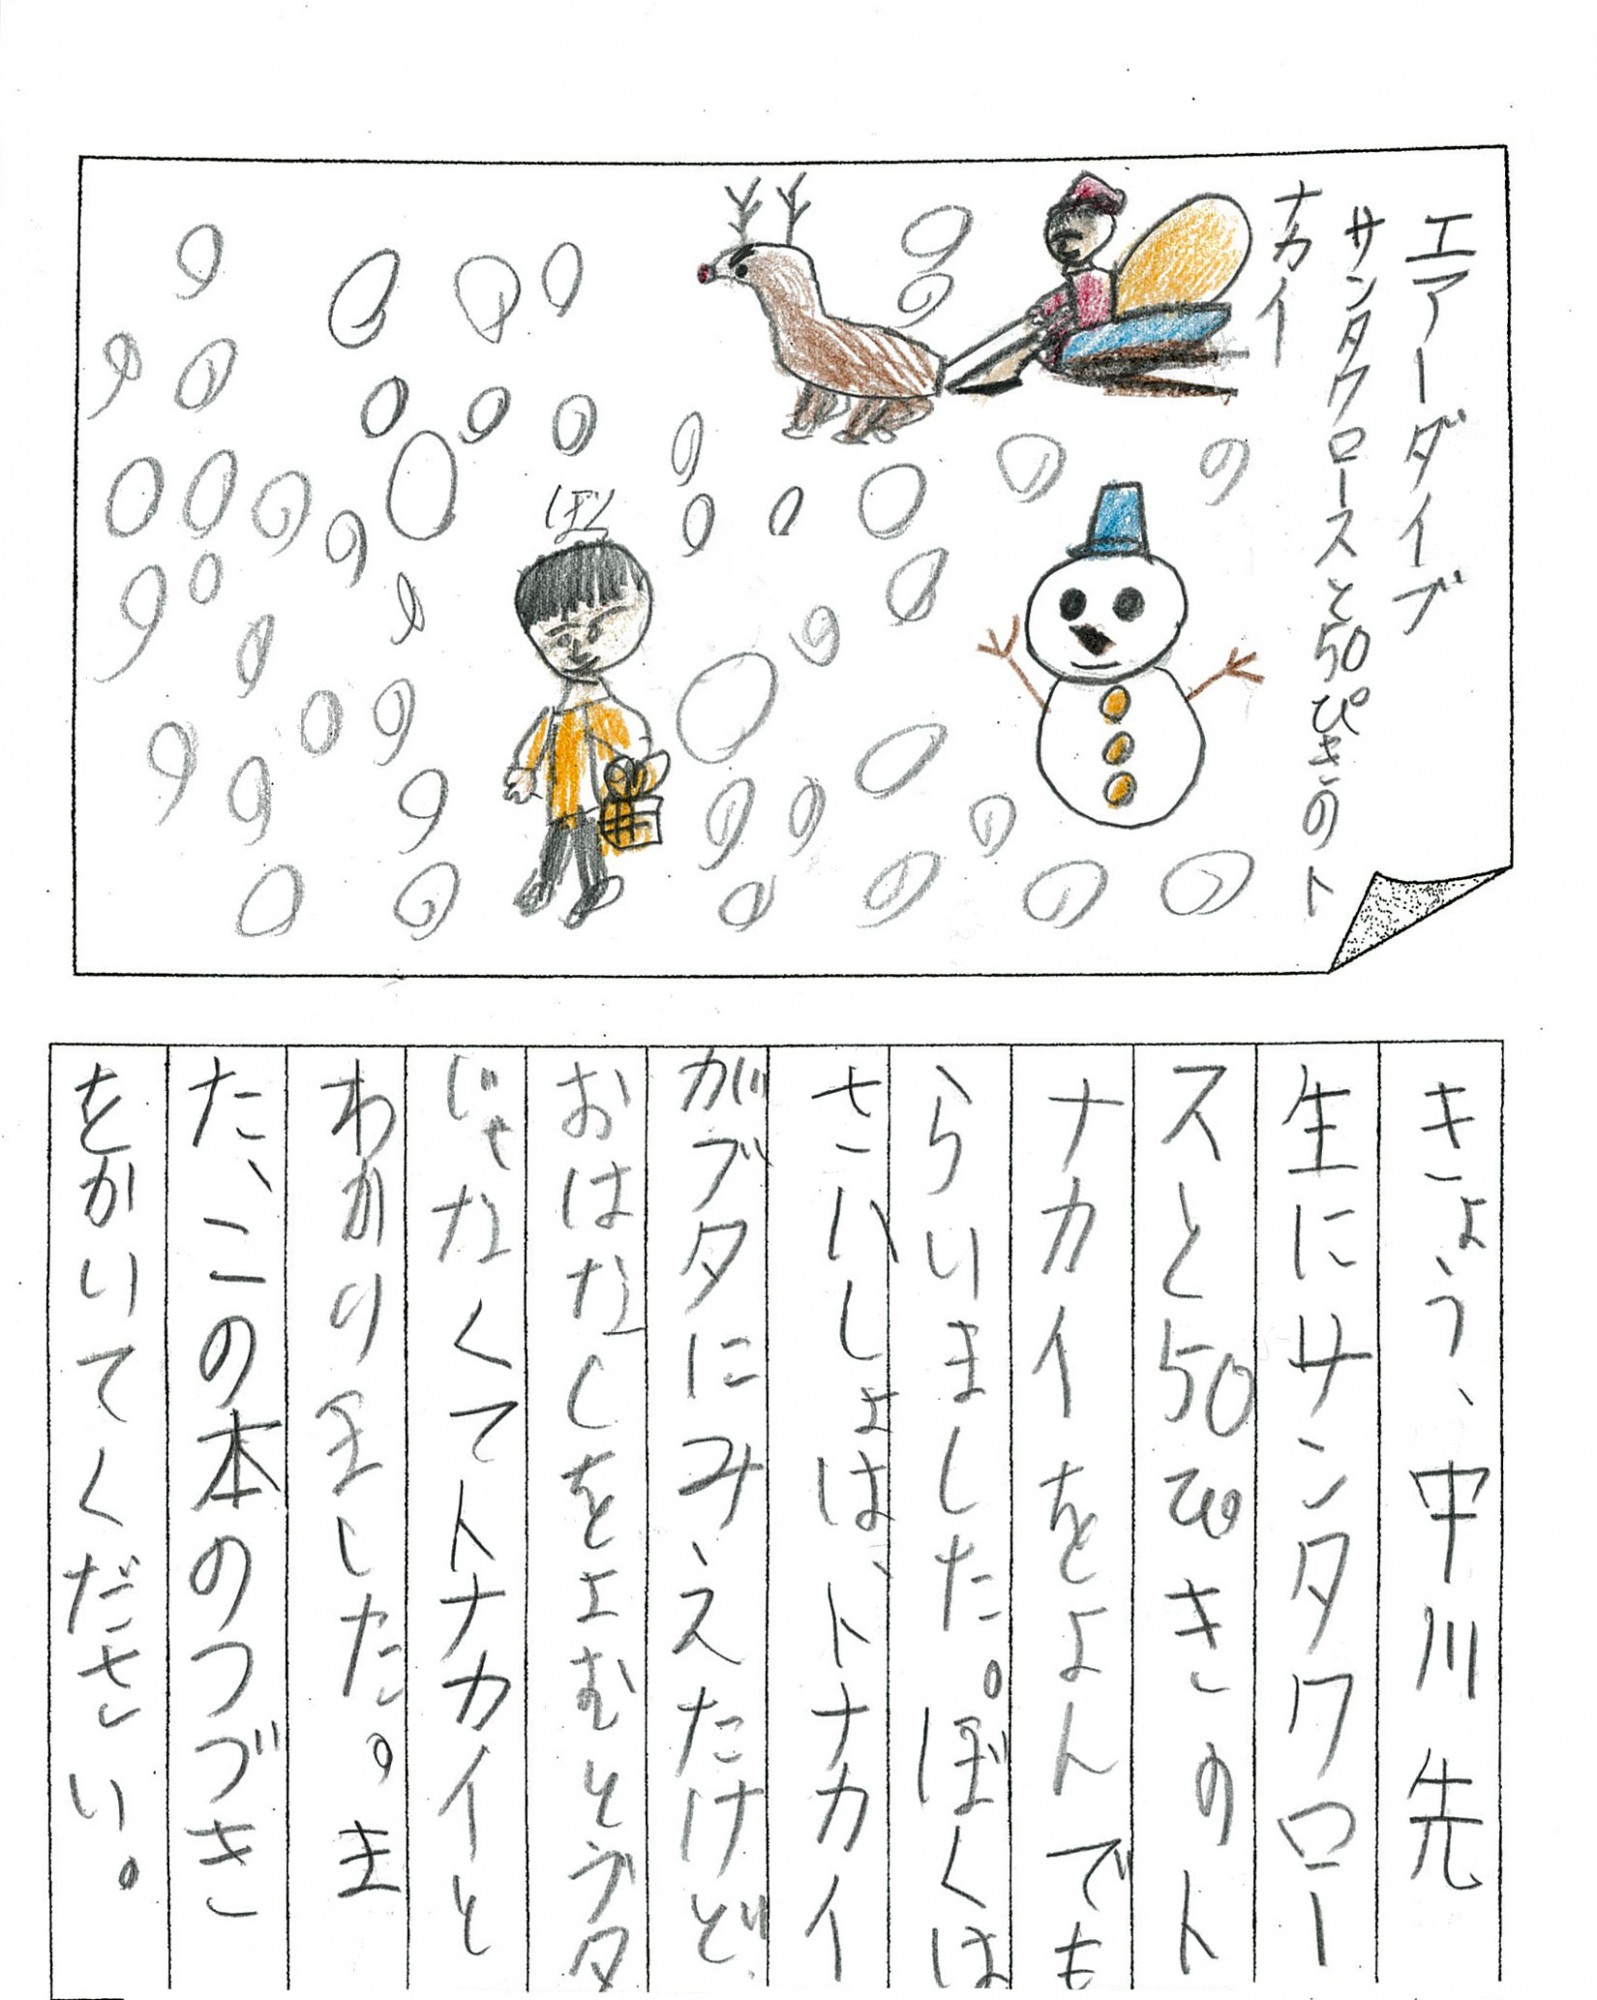 エアーダイブ
サンタクロースと50ぴきのト
ナカイ
ぼく
きょう、中川先
生にサンタクロー
スと50ぴきのト
ナカイをよんでも
らいました。ぼくは
さいしょは、トナカイ
がブタにみえたけど、
おはなしをよむとブタ
じゃなくてトナカイと
わかりました。ま
た、この本のつづき
をかいてください。